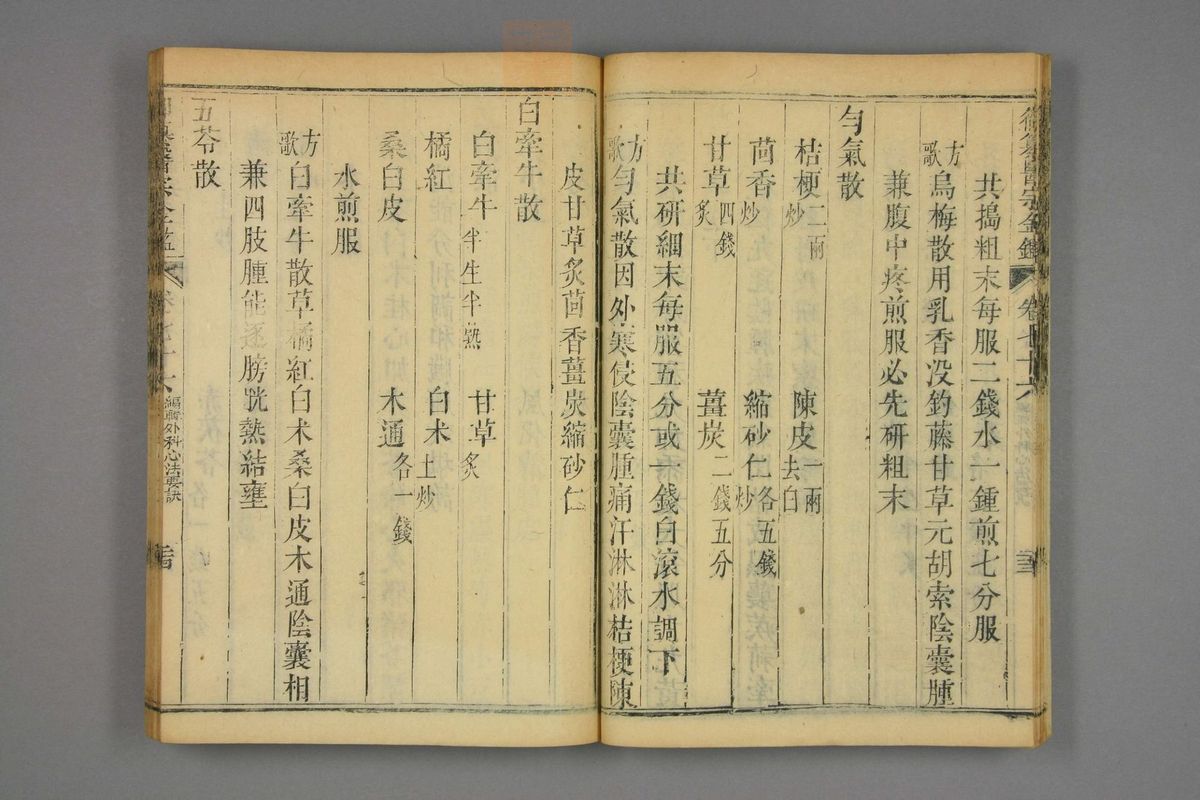 御纂醫宗金鑑 卷七十六
共搗粗末每服二錢水一鍾煎七分服
方歌 烏梅散用乳香没鈎藤甘草元胡索陰囊腫
兼腹中疼煎服必先研粗末
勻氣散
桔梗二兩炒 陳皮一兩去白
茴香炒 縮砂仁各五錢炒
甘草四錢炙 薑炭二錢五分
共研細末每服五分或一錢白滾水調下
方歌 勻氣散因外寒侵陰囊腫痛汗淋淋桔梗陳
皮甘草炙茴香薑炭縮砂仁
白牽牛散
白牽牛半生半熟 甘草炙
橘紅 白术土炒
桑白皮 木通各一錢
水煎服
方歌 白牽牛散草橘紅白术桑白皮木通陰囊相
兼四肢腫能逐膀胱熱結壅
五苓散
編輯外科心法要訣